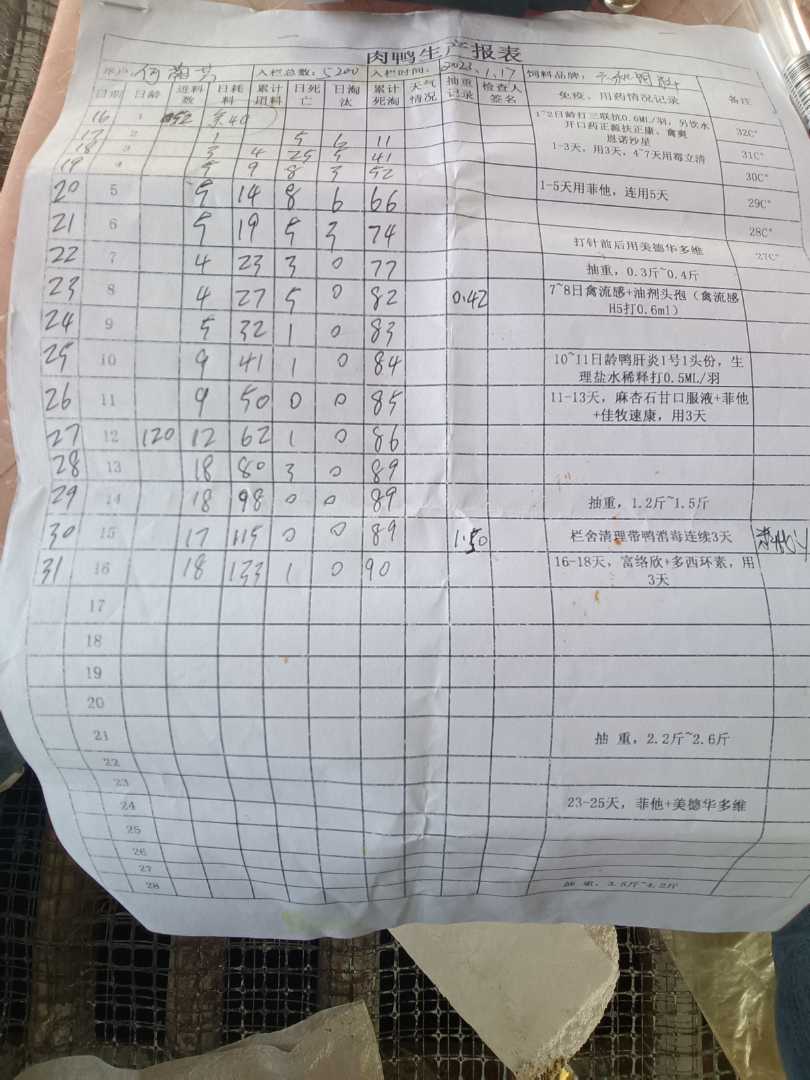 肉鸭生产报表
入栏总数：5200 入栏时间：2023.1.17 饲料品牌：
日期 日龄 进料数 日耗料 累计耗料 日死亡 日淘汰 累计死淘 天气情况 抽重记录 检查人签名 免疫、用药情况记录 备注
16 1
1~2日龄打三联抗0.6ML/羽，另饮水
开口药正源扶正康，禽爽
恩诺沙星
32C°
17 2 1 5 6 11
18 3 3 4 25 5 41
1-3天，用3天，4~7天用霉立清
31C°
19 4 5 9 8 3 52
30C°
20 5 5 14 8 6 66
1-5天用菲他，连用5天
29C°
21 6 5 19 5 3 74
28C°
打针前后用美德华多维
27C°
22 7 4 23 3 0 77
抽重，0.3斤~0.4斤
23 8 4 27 5 0 82 0.42
7~8日禽流感+油剂头孢（禽流感
H5打0.6ml）
24 9 5 32 1 0 83
25 10 9 41 1 0 84
10~11日龄鸭肝炎1号1头份，生
理盐水稀释打0.5ML/羽
26 11 9 50 0 0 85
11-13天，麻杏石甘口服液+菲他
+佳牧速康，用3天
27 12 120 12 62 1 0 86
28 13 18 80 3 0 89
29 14 18 98 0 0 89
抽重，1.2斤~1.5斤
30 15 17 115 0 0 89 1.50
栏舍清理带鸭消毒连续3天
31 16 18 133 1 0 90
16-18天，富络欣+多西环素，用
3天
17
18
19
20
21 抽 重，2.2斤~2.6斤
22
23
24 23-25天，菲他+美德华多维
25
26
27
28